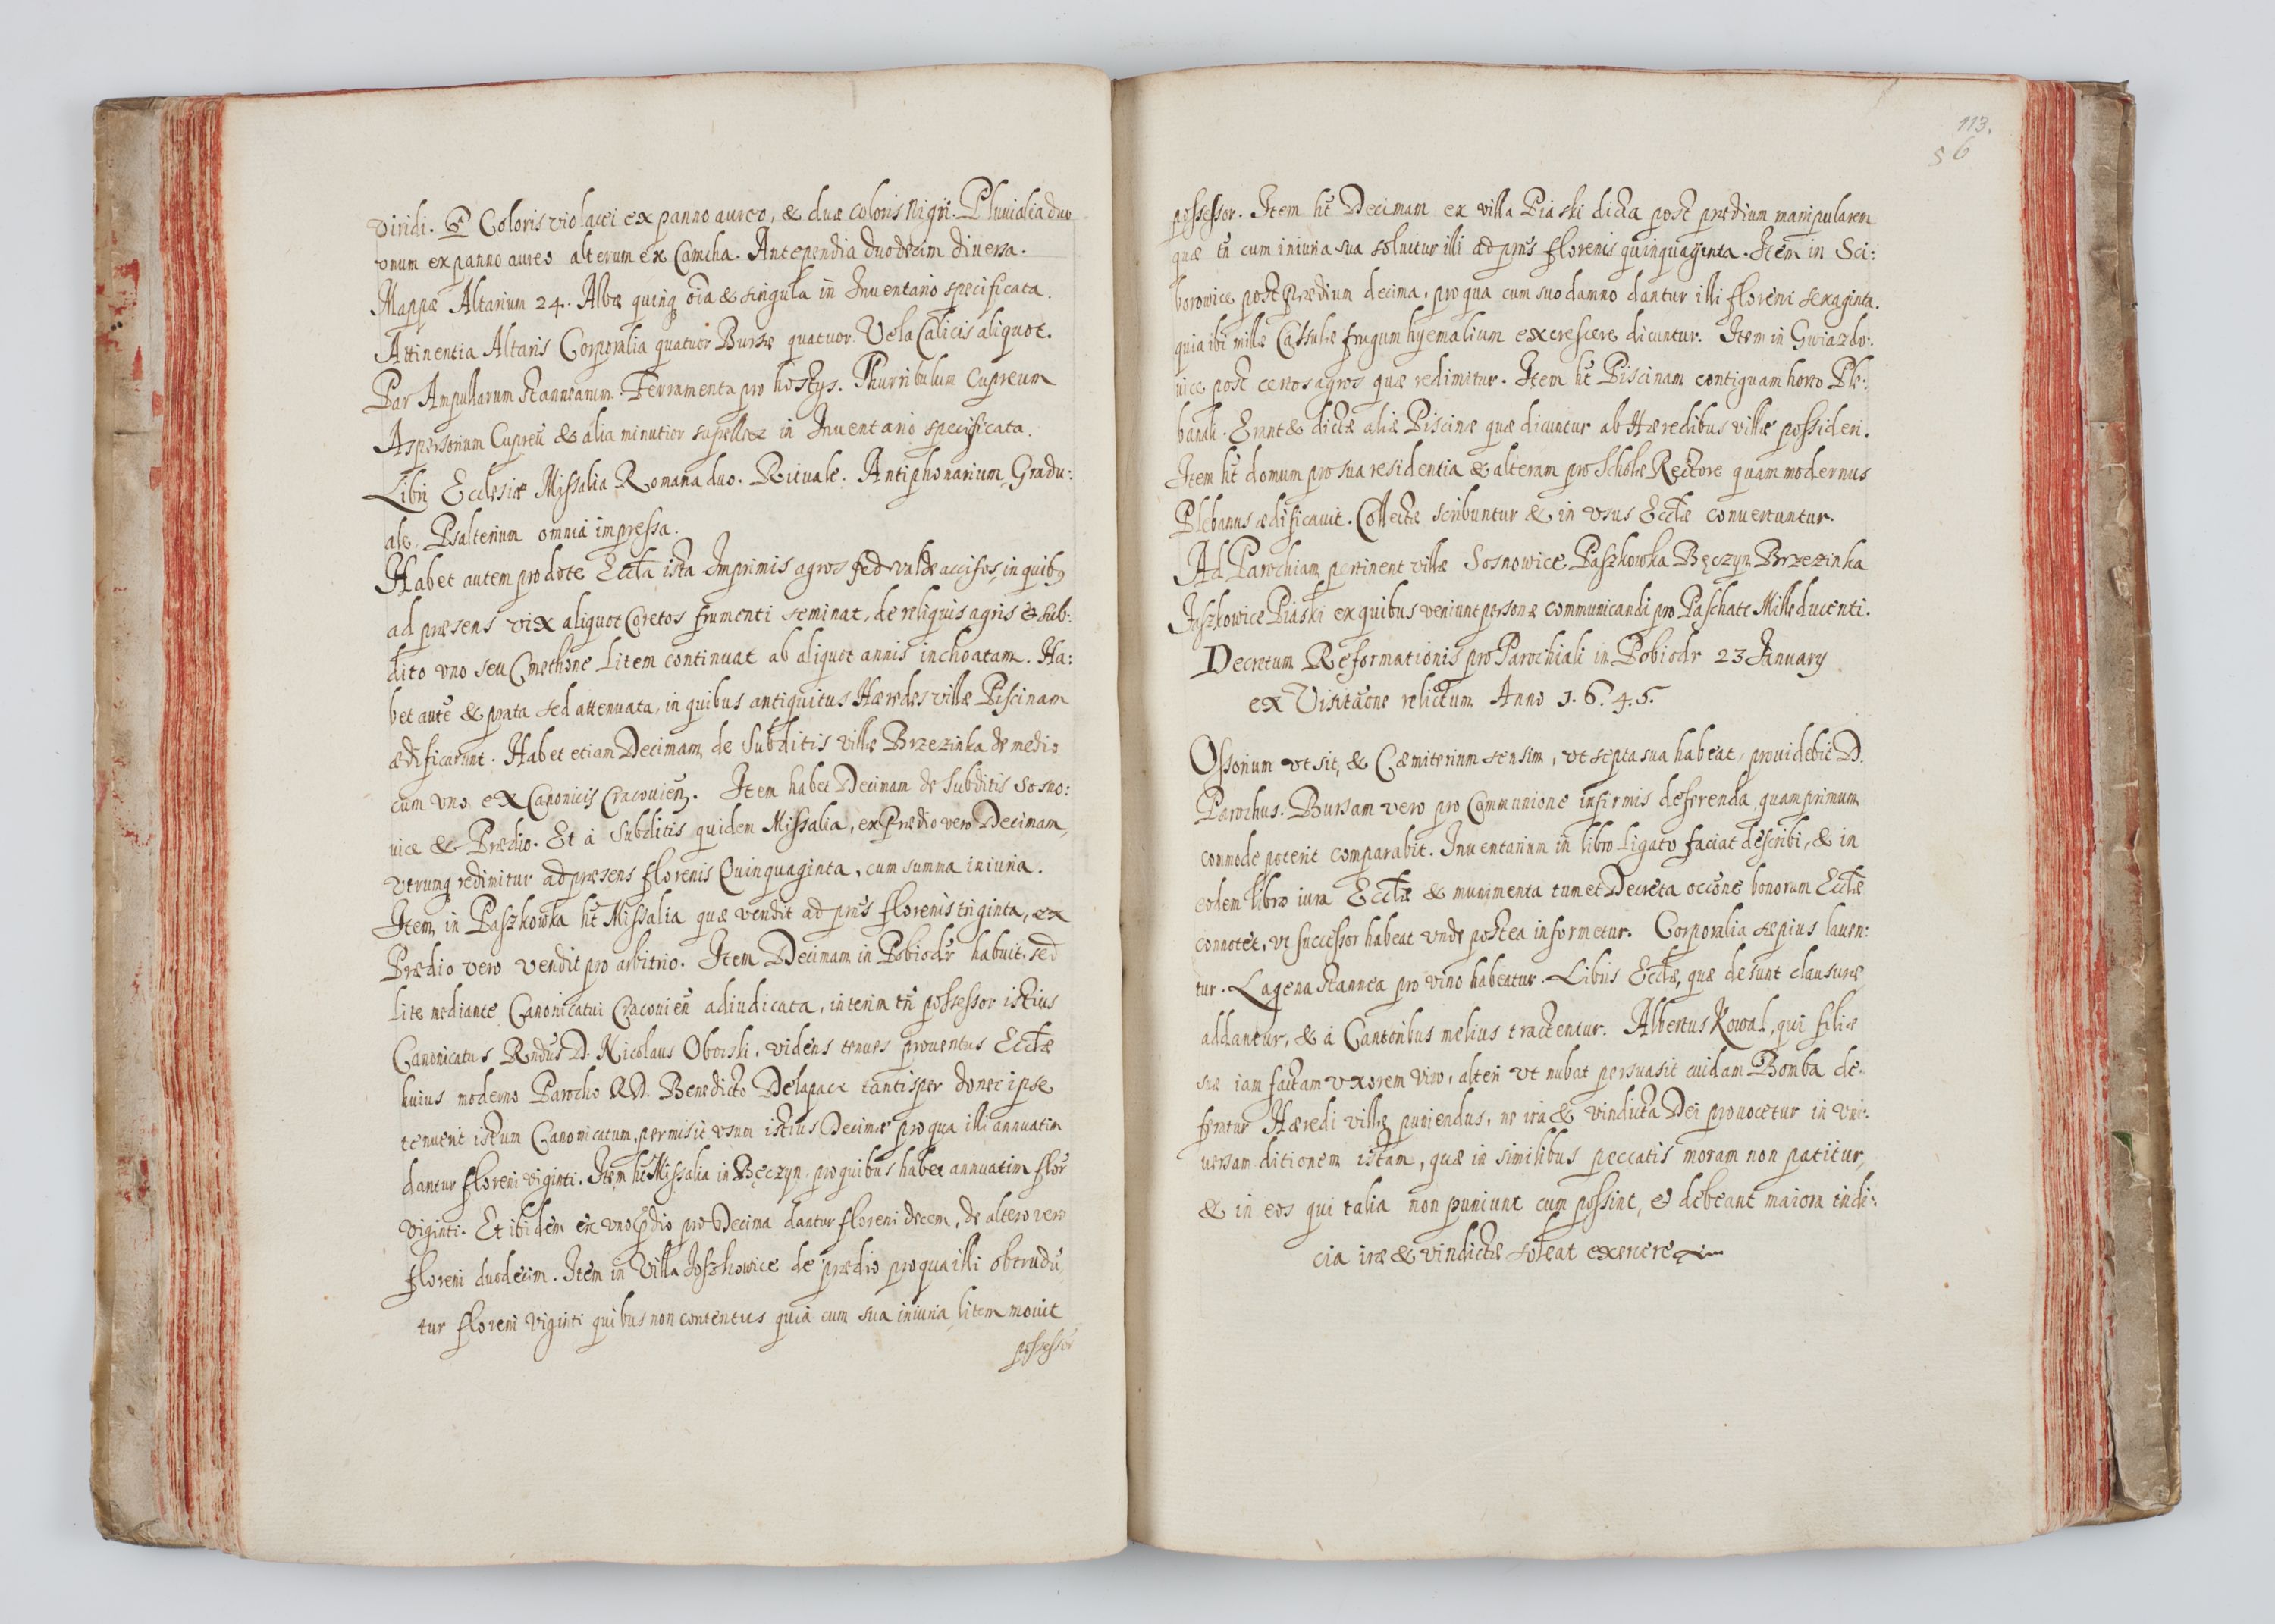 viridi. Coloris violacei ex panno aureo, & duæ coloris Nigri. Pluuialia duo
vnum ex panno aureo alterum ex Camcha. Antependia duodecim diuersa.
Mappæ Altarium 24. Albæ quinq oīa & singula in Inuentario specificata.
Attinentia Altaris Corporalia quatuor Bursæ quatuor Vela Calicis aliquot.
Par Ampullarum stannearum. Ferramenta pro hostys. Thurribulum Cupreum
Aspersorium Cupreū & alia minutior supellex in Inuentario specificata.
Libri Ecclesiæ Missalia Romana duo. Rituale. Antiphonarium, Gradu:
ale, Psalterium omnia impressa.
Habet autem pro dote Eccla ista Imprimis agros sed valde accisos, in quibꝰ
ad præsens vix aliquot Coretos frumenti seminat, de reliquis agris & sub:
dito vno seu Cmethone Litem continuat ab aliquot annis inchoatam. Ha:
bet autē & prata sed attenuata, in quibus antiquitus Hæredes villæ Piscinam
ædificarunt. Habet etiam Decimam de Subditis villæ Brzezinka de medio
cum vno ex Canonicis Cracouien. Item habet Decimam de Subditis Sosno:
uice & Prædio. Et à Subditis quidem Missalia, ex Prædio vero Decimam,
vtrunq redimitur ad præsens florenis Quinquaginta, cum summa iniuria.
Item in Paszkowka ht Missalia quæ vendit ad pñs florenis triginta, ex
Prædio vero vendit pro arbitrio. Item Decimam in Pobiodr habuit, sed
lite mediante Canonicatui Cracouien adiudicata, interim tñ possessor istius
Canonicatus Rndus D. Nicolaus Oborski, videns tenues prouentus Ecclæ
huius moderno Parocho RD. Benedicto Delapace tantisper donec ipse
tenuerit istum Canonicatum, permisit vsum istius Decimæ pro qua illi annuatim
dantur floreni viginti. Item ht Missalia in Bęczyn, pro quibus habet annuatim flor
viginti. Et ibidem ex vno pdio pro Decima dantur floreni decem, de altero vero
floreni duodecim. Item in Villa Jszkowice de prædio pro qua illi obtrudū,
tur floreni viginti quibus non contentus quia cum sua iniuria, litem mouit
possessor
113.
56
possessor. Item ht Decimam ex villa Piaski dicta post prædium manipularem
quæ tñ cum iniuria sua soluitur illi ad pñs florenis quinquaginta. Item in Sci:
borowice post Prædium decima, pro qua cum suo damno dantur illi floreni sexaginta.
quia ibi mille Cassulæ frugum hyemalium excrescere dicuntur. Item in Gwiazdo:
uice post certos agros quæ redimitur. Item ht Piscinam contiguam horto Ple:
banali. Erant & dictæ aliæ Piscinæ quæ dicuntur ab Hæredibus villæ possideri.
Item ht domum pro sua residentia & alteram pro Scholæ Rectore quam modernus
Plebanus ædificauit. Collectæ scribuntur & in vsus Ecclæ conuertuntur.
Ad Parochiam pertinent villæ Sosnowice Paszkowka Bęczyn Brzezinka
Jszkowice Piaski ex quibus veniunt personæ communicandi pro Paschate Mille ducenti.
Decretum Reformationis pro Parochiali in Pobiodr 23 January
ex Visitaōne relictum Anno 1.6.4.5.
Ossorium vt sit, & Cæmiterium sensim, vt septa sua habeat, prouidebit D.
Parochus. Bursam vero pro Communione infirmis deferenda quamprimum
commode poterit comparabit. Inuentarium in libro Ligato faciat describi, & in
eodem libro iura Ecclæ & munimenta tum et Decreta occōne bonorum Ecclæ
connotet, vt successor habeat vnde postea informetur. Corporalia sæpius lauen:
tur. Lagena stannea pro vino habeatur. Libris Ecclæ, quæ desunt clausuræ
addantur, & à Cantoribus melius tractentur. Albertus Kowal, qui filiæ
suæ iam factam vxorem viro, alteri vt nubat persuasit cuidam Bomba de:
feratur Hæredi villæ puniendus, ne ira & vindicta Dei prouocetur in vni:
uersam ditionem istam, quæ in similibus peccatis moram non patitur,
& in eos qui talia non puniunt cum possint, & debeant maiora indi:
cia iræ & vindictæ soleat exercere